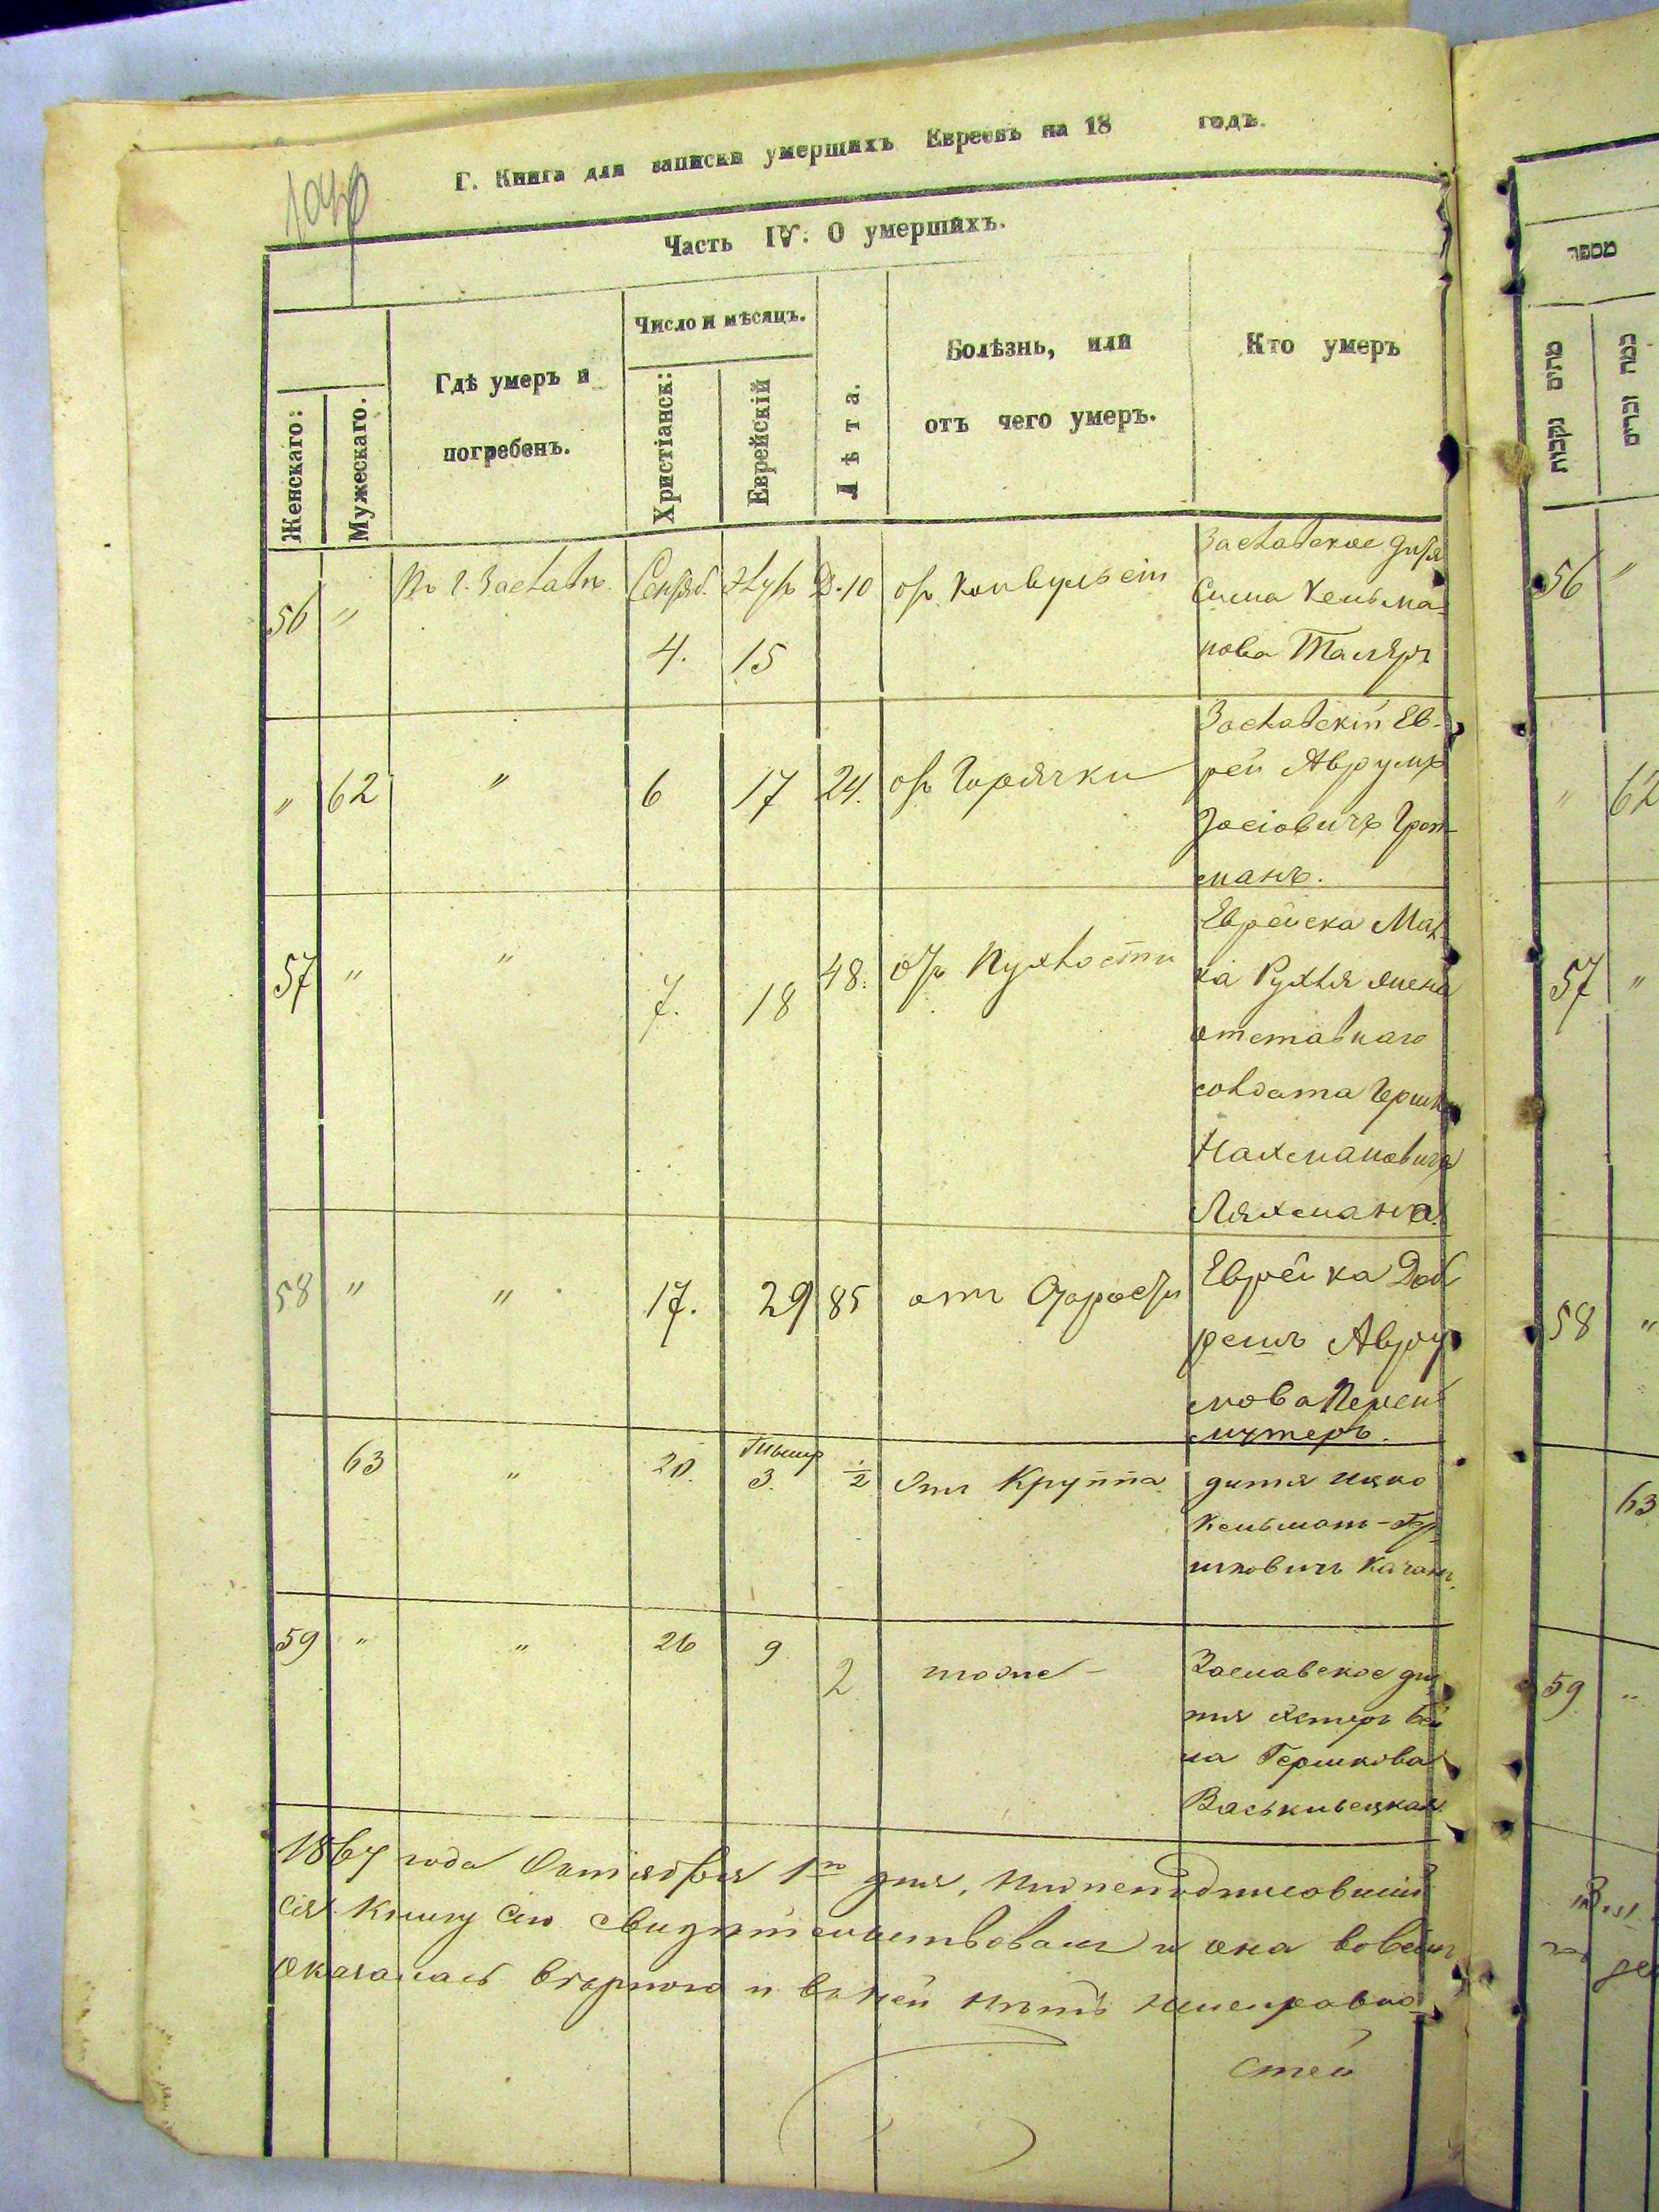 Г. Книга для записки умершихъ Евреевъ на 18 годъ.
Часть IV: О умершихъ.
Женскаго:
Мужескаго.
Гдѣ умеръ и
погребенъ.
Число и мѣсяцъ.
Христіанск:
Еврейскій
Лѣта.
Болѣзнь, или
отъ чего умеръ.
Кто умеръ
56 " Въ г. Заславлѣ Сентяб. 4. 15 Д. 10 отъ Конвульсіи
Заславское дитя
Сима Хельма-
нова Таляръ
" 62 " 6 17 24. отъ Горячки
Заславскій Ев-
рей Аврумъ
Іосіовичъ
манъ.
57 " " 7. 18 48. отъ Пухлости
Еврейка Мал-
ка Рухля жена
отставнаго
солдата Гершка
Нахмановича
Ляхмана.
58 " " 17. 29 85 отъ Старости
Еврейка Доб
решъ Авру
мова Перел
мутеръ.
63 " 20. Тишир 3. 1/2 Отъ Круппа
дитя Ицко
Кельманъ-Гер
шковичъ
59 " " 26 9 2 тоже -
Заславское ди
тя Эстеръ Бей
ла Гершкова
Васькивецкая
1867 года Октября 1го дня, Нижеподписавший
ся Книгу Сію Свидѣтельствовалъ и она вовсемъ
оказалась вѣрною и въ ней нѣтъ неисправно-
стей
מספר
מתים נקבות
כמה זכרים
56 "
" 62
57 "
58 "
63
59 "